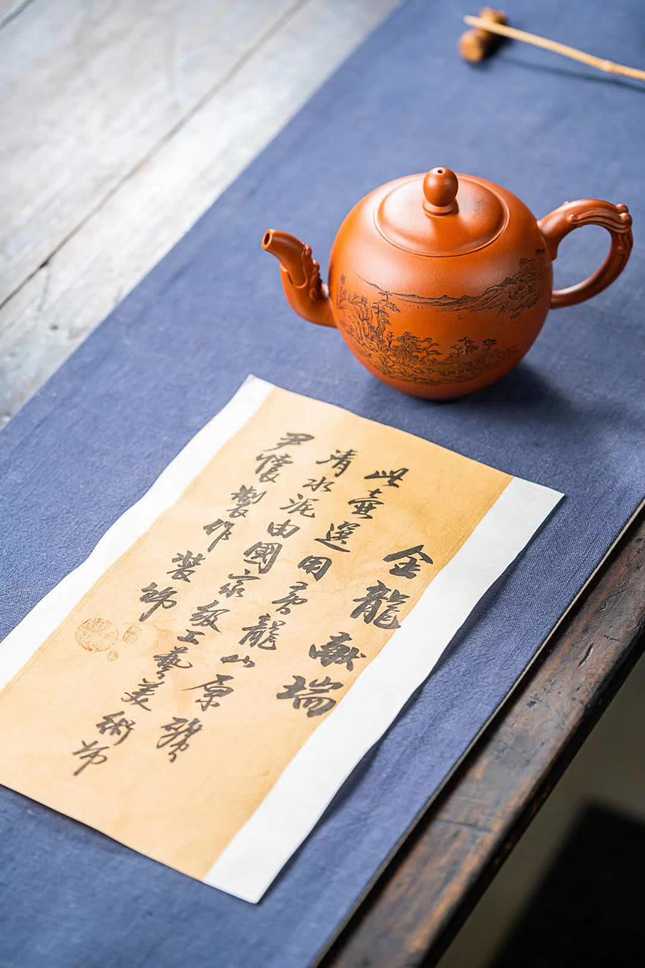 金龍献瑞
此壺選用黄龍山原礦
清水泥由國家級工藝美術師
尹懐製作装飾